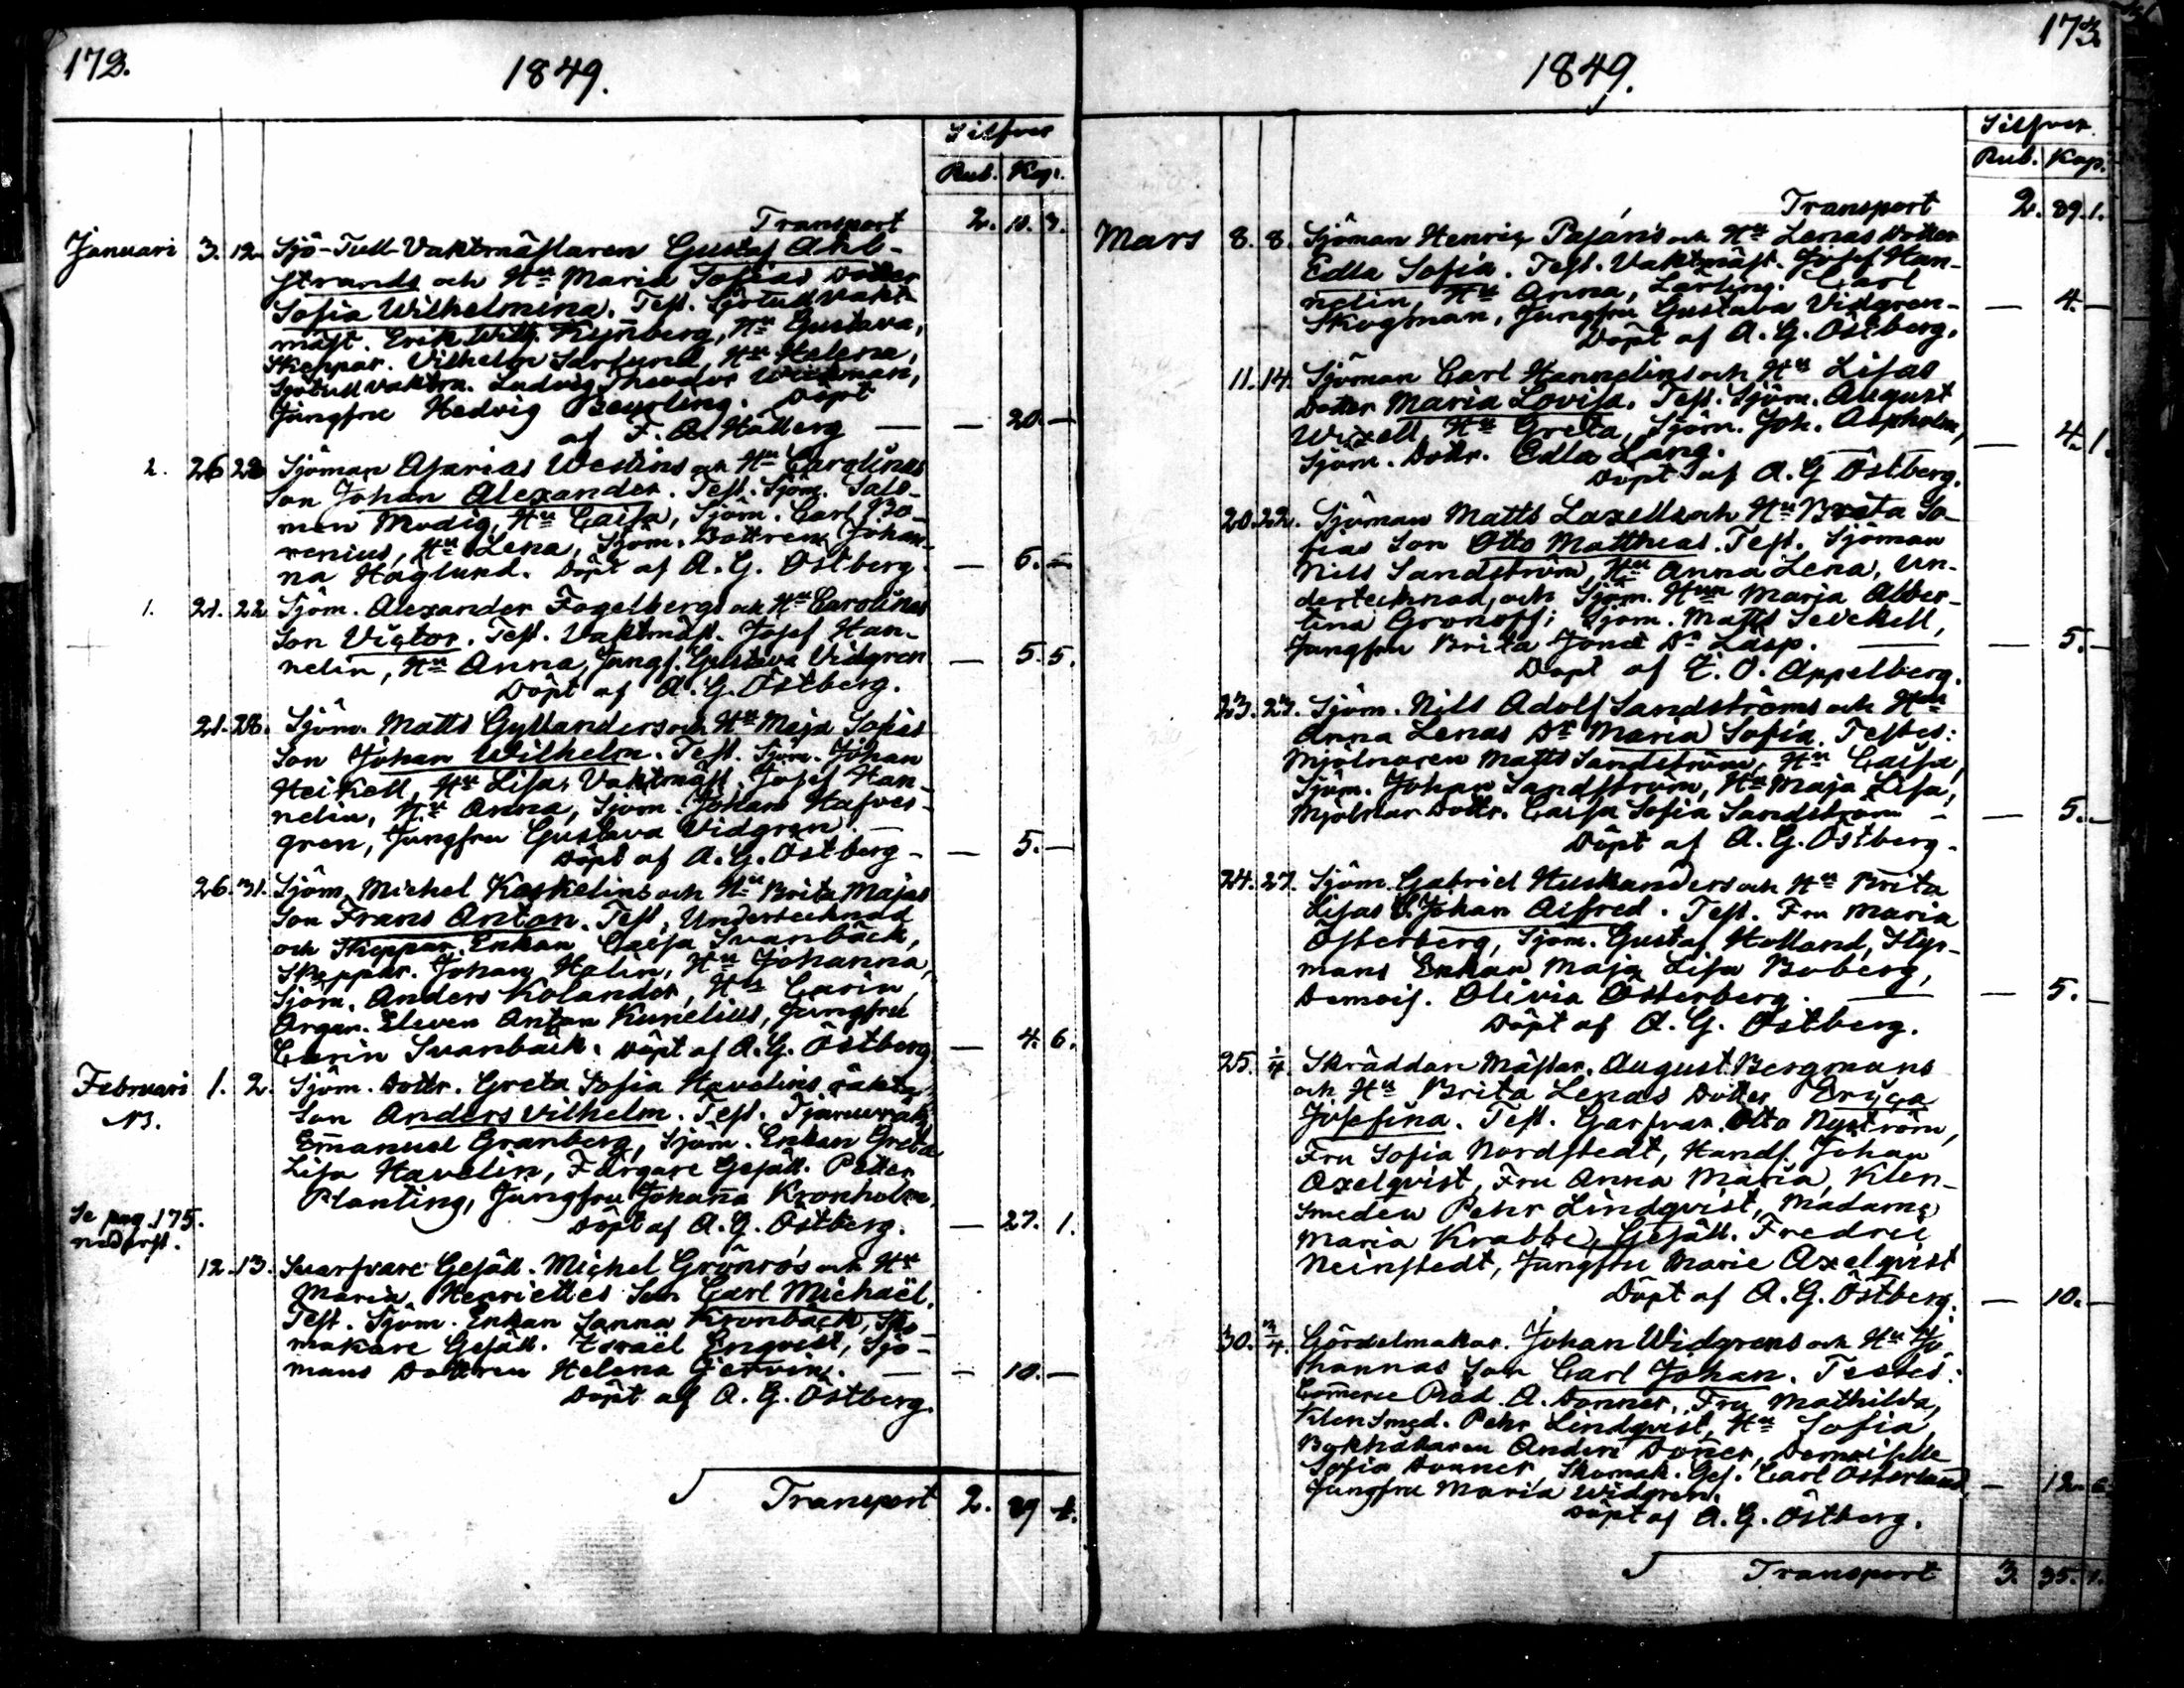 172.
1849.
Silfver
Rub. Kop.
Transport 2. 10. 3.
Januari 3. 12. Sjö-Tull-Vaktmästaren Gustaf Ahl-
strands och Hu Maria Sofias Dotter
Sofia Wilhelmina. Test. Sjötullvakt-
mäst. Erik Wilh. Kynberg, Hu Gustava,
Skeppar. Vilhelm Sarlund, Hu Helena,
Sjötull vaktm. Ludvig Theodor Wickman,
Jungfru Hedvig Beurling. Döpt
af F. A. Hällberg — — 20. —
2. 26 28 Sjöman Asarias Westins och Hu Carolinas
Son Johan Alexander. Test. Sjöm. Salo-
mon Modig, Hu Caisa, Sjöm. Carl Bo-
renius, Hu Lena, Sjöm. Dottren Johan-
na Höglund. Döpt af A. G. Östberg. — 6.
1. 21. 22 Sjöm. Alexander Fogelbergs och Hu Carolinas
Son Victor. Test. Vaktmäst. Josef Han-
nelin, Hu Anna, Jungf. Gustava Vidgren — 5. 5.
Döpt af A. G. Östberg.
21. 28. Sjöm. Matts Gyllanders och Hu Maja Sofias
Son Johan Wilhelm. Test. Sjöm. Johan
Heikell, Hu Lisa, Vaktmäst. Josef Han-
nelin, Hu Anna, Sjöm. Johan Hafver-
gren, Jungfru Gustava Vidgren. —
Döpt af A. G. Östberg - — 5. —
26. 31. Sjöm. Michel Keskelins och Hu Brita Majas
Son Frans Anton. Test. Undertecknad
och Skeppar. Enkan Caisa Svanbäck,
Skeppar. Johan Holin, Hu Johanna,
Sjöm. Anders Kolander, Hu Carin,
Organ. Eleven Anton Kunelius, Jungfru
Carin Svanbäck. Döpt af A. G. Östberg — 4. 6.
Februari 1. 2. Sjöm. Dottr. Greta Sofia Havelins oäkta
NB. Son Anders Vilhelm. Test.
Emanuel Granberg, Sjöm. Enkan Greta
Lisa Havelin, Färgare Gesäll. Petter
Planting, Jungfru Johanna Kronholm.
Se pag. 175. Döpt af A. G. Östberg. — 27. 1.
nederst.
12. 13. Svarfvare Gesäll. Michel Grönros och Hu
Maria Henriettes Son Carl Michaël.
Test. Sjöm. Enkan Sanna Kronbäck, Sko-
makare Gesäll. Israël Enqvist, Sjö-
mans Dottren Helena — — 10. —
Döpt af A. G. Östberg.
Transport 2. 89 1.
173.
1849.
Silfver.
Rub. Kop.
Transport 2. 89. 1.
Mars 8. 8. Sjöman Henric Pajáris och Hu Lenas Dotter
Edla Sofia. Test. Vaktmäst. Josef Han-
nelin, Hu Anna, Lärling. Carl
Skogman, Jungfru Gustava Vidgren - — 4. —
Döpt af A. G. Östberg.
11. 14. Sjöman Carl Hannelins och Hu Lisas
Dotter Maria Lovisa. Test. Sjöm. August
Wixell, Hu Greta, Sjöm. Joh. Aspholm,
Sjöm. Dottr. Edla Lång. — 4. 1.
Döpt af A. G Östberg.
20. 22. Sjöman Matts Laxells och Hu Brita So-
fias Son Otto Matthias. Test. Sjöman
Nils Sandström, Hu Anna Lena, Un-
dertecknad, och Sjöm. Hun Maria Alber-
tina Gronoff; Sjöm. Matts Sevckell,
Jungfru Brita Jons Dr Läsp. — — 5. —
Döpt af E. O. Appelberg.
23. 23. Sjöm. Nils Adolf Sandströms och Hu
Anna Lenas Dr Maria Sofia. Testes:
Mjölnaren Matts Sandström, Hu Caisa,
Sjöm. Johan Sandström, Hu Maja Lisa,
Mjölnar Dottr. Caisa Sofia Sandström - — 5. —
Döpt af A. G. Östberg.
24. 27. Sjöm. Gabriel Huskanders och Hu Brita
Lisas S. Johan Alfred. Test. Fru Maria
Österberg, Sjöm. Gustaf Holland, Styr-
mans Enkan Maja Lisa Boberg,
Demois. Olivia Österberg. — — 5. —
Döpt af A. G. Östberg.
25. 1/4 Skräddar Mästar. August Bergmans
och Hu Brita Lenas Dotter Eryca
Josefina. Test. Garfvar. Otto Nyström,
Fru Sofia Nordstedt, Handl. Johan
Axelqvist, Fru Anna Maria, Klen-
smeden Pehr Lindqvist, Madame
Maria Krabbe, Gesäll. Fredric
Neinstedt, Jungfru Marie Axelqvist
Döpt af A. G. Östberg. — 10. —
30. 3/4. Gördelmakar. Johan Widgrens och Hu Jo-
hannas Son Carl Johan. Testes:
Commerce Råd. A. Donner, Fru Mathilda,
Klensmed. Pehr Lindqvist, Hu Sofia
Bokhållaren Anders Donner, Demoiselle
Sofia Donner, Skomak. Ges. Carl Österlund,
Jungfru Maria Widgren. — 12. 6.
Döpt af A. G. Östberg.
Transport 3. 35. 1.